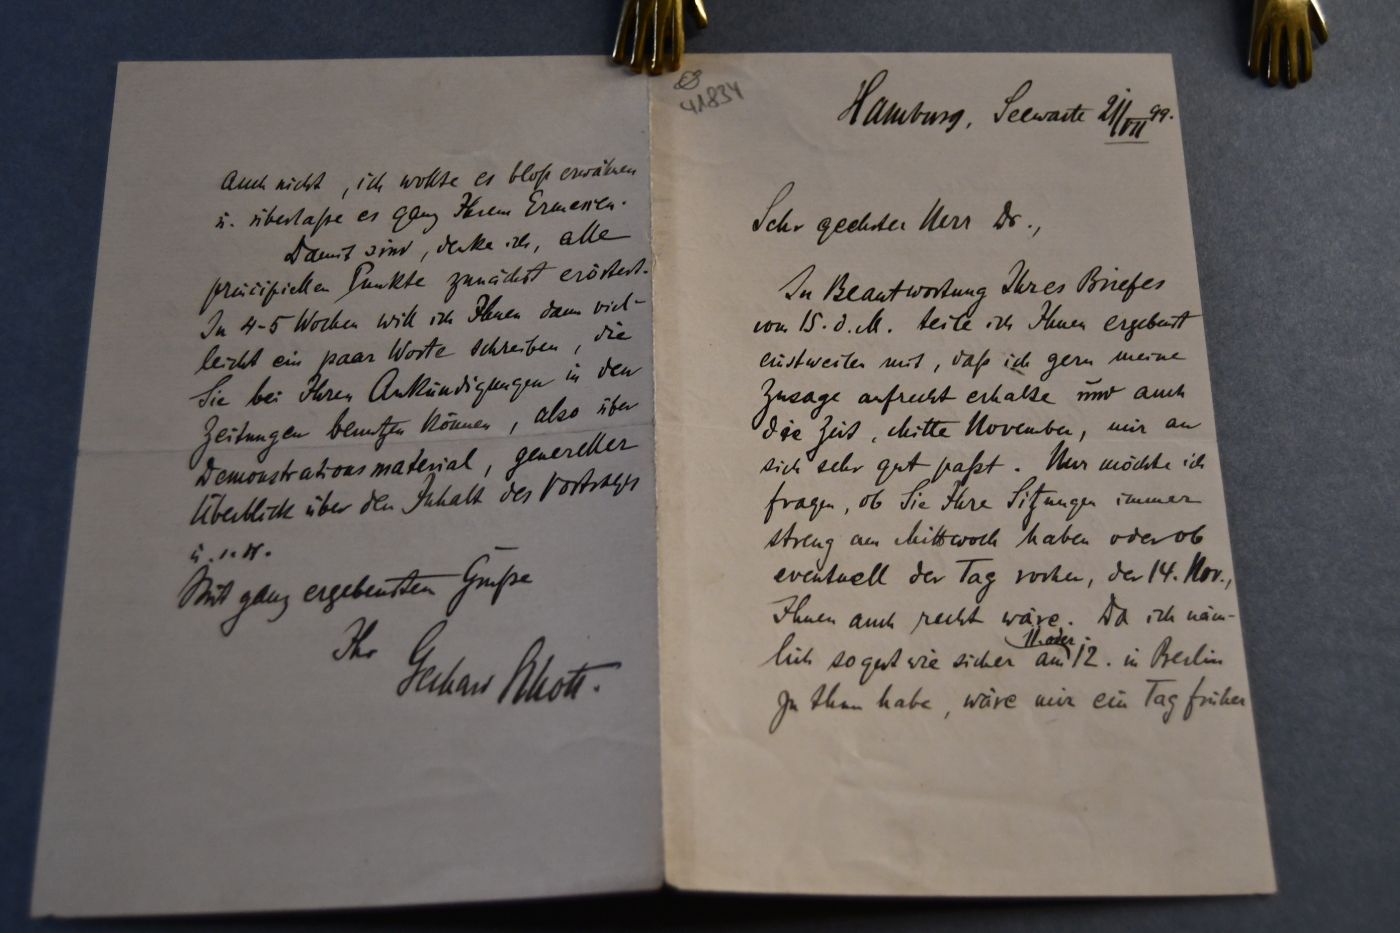 41834
Hamburg, Seewarte 21/VII 99.
Sehr geehrter Herr Dr.,
In Beantwortung Ihres Briefes
vom 15. d. M. teile ich Ihnen ergebenst
einstweilen mit, daß ich gern meine
Zusage aufrecht erhalte und auch
die Zeit, Mitte November, mir an
sich sehr gut paßt. Nur möchte ich
fragen, ob Sie Ihre Sitzungen immer
streng am Mittwoch haben oder ob
eventuell der Tag vorher, der 14. Nov.,
Ihnen auch recht wäre. Da ich näm-
11. oder
lich so gut wie sicher am 12. in Berlin
zu thun habe, wäre mir ein Tag früher
auch nicht, ich wollte es bloß erwähnen
u. überlaße es ganz Ihrem Ermessen.
Damit sind, denke ich, alle
principiellen Punkte zunächst erörtert.
In 4-5 Wochen will ich Ihnen dann viel-
leicht ein paar Worte schreiben, die
Sie bei Ihren Ankündigungen in den
Zeitungen benutzen können, also über
Demonstrationsmaterial, genereller
Überblick über den Inhalt des Vortrages
u. s. w.
Mit ganz ergebensten Grüßen
Ihr
Gerhard Schott.